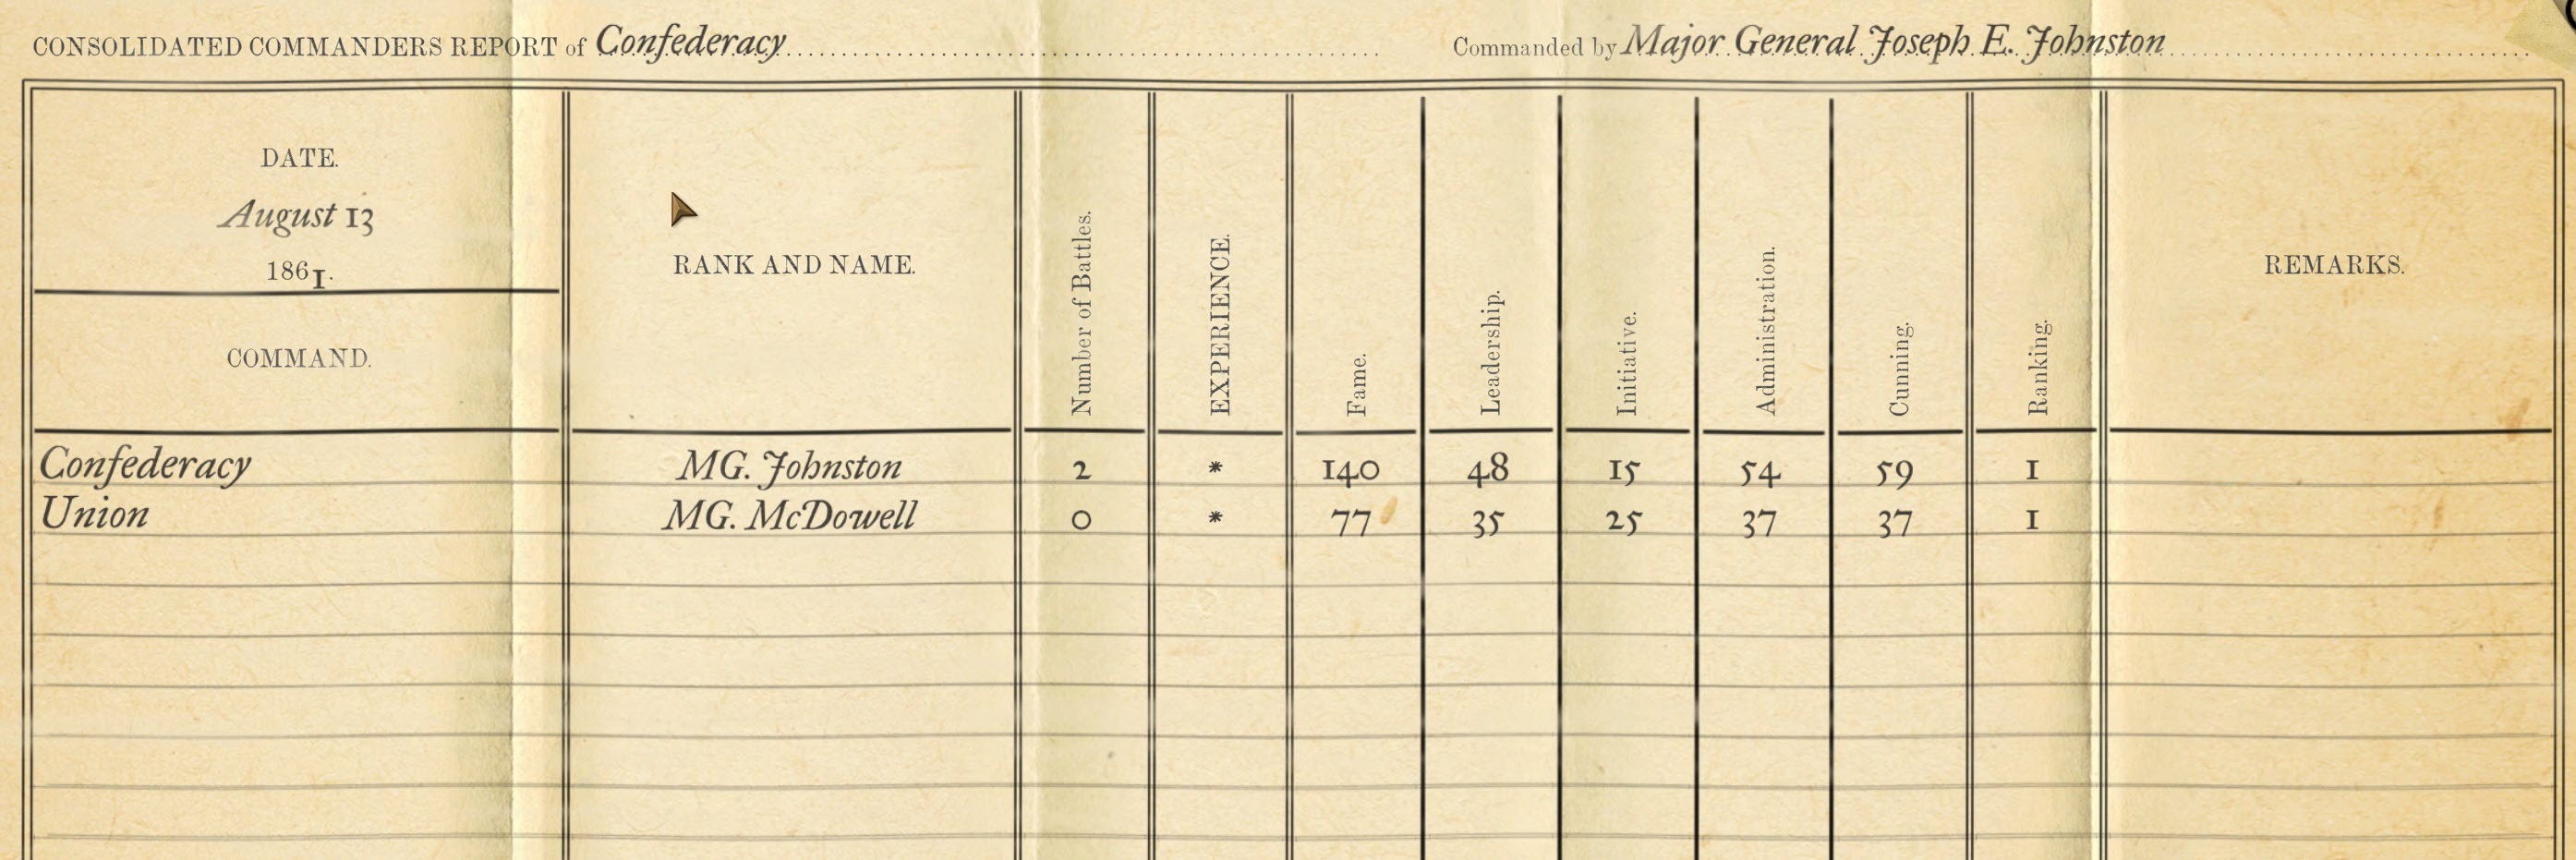 CONSOLIDATED COMMANDERS REPORT of Confederacy Commanded by Major General Joseph E. Johnston
DATE.
August 13
1861.
COMMAND.
RANK AND NAME.
Number of Battles.
EXPERIENCE.
Fame.
Leadership.
Initiative.
Administration.
Cunning.
Ranking.
REMARKS.
Confederacy MG. Johnston 2 * 140 48 15 54 59 1
Union MG. McDowell 0 * 77 35 25 37 37 1